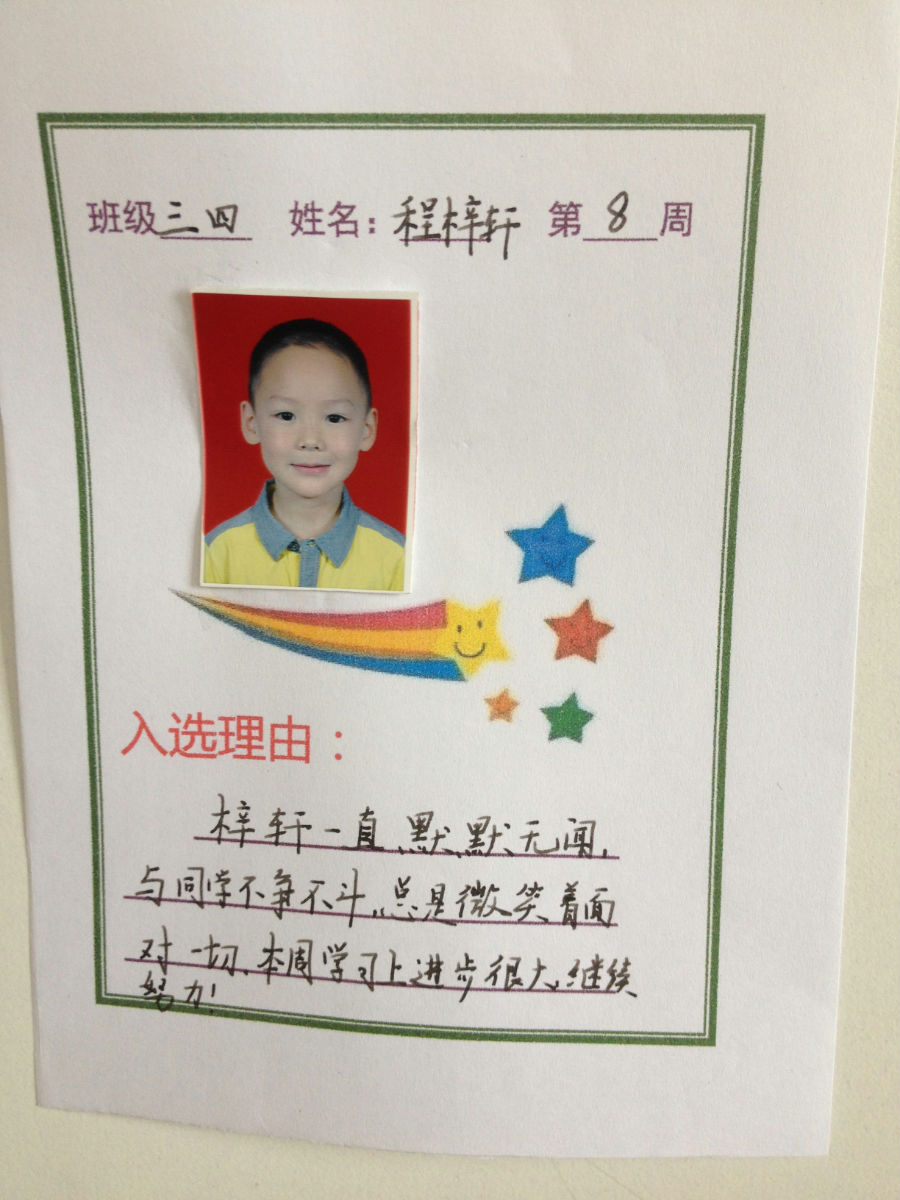 班级三四 姓名：程梓轩 第8周
入选理由：
梓轩一直默默无闻,
与同学不争不斗,总是微笑着面
对一切.本周学习上进步很大,继续
努力!